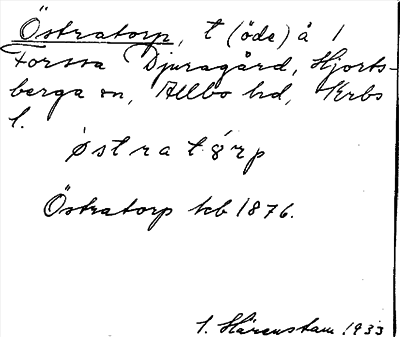 Östratorp, t (öde) å 1
Forssa Djuragård, Hjorts-
berga sn, Allbo hd, Krbs
l.
östratorp
Östratorp kb 1876.
S. Härenstam 1933